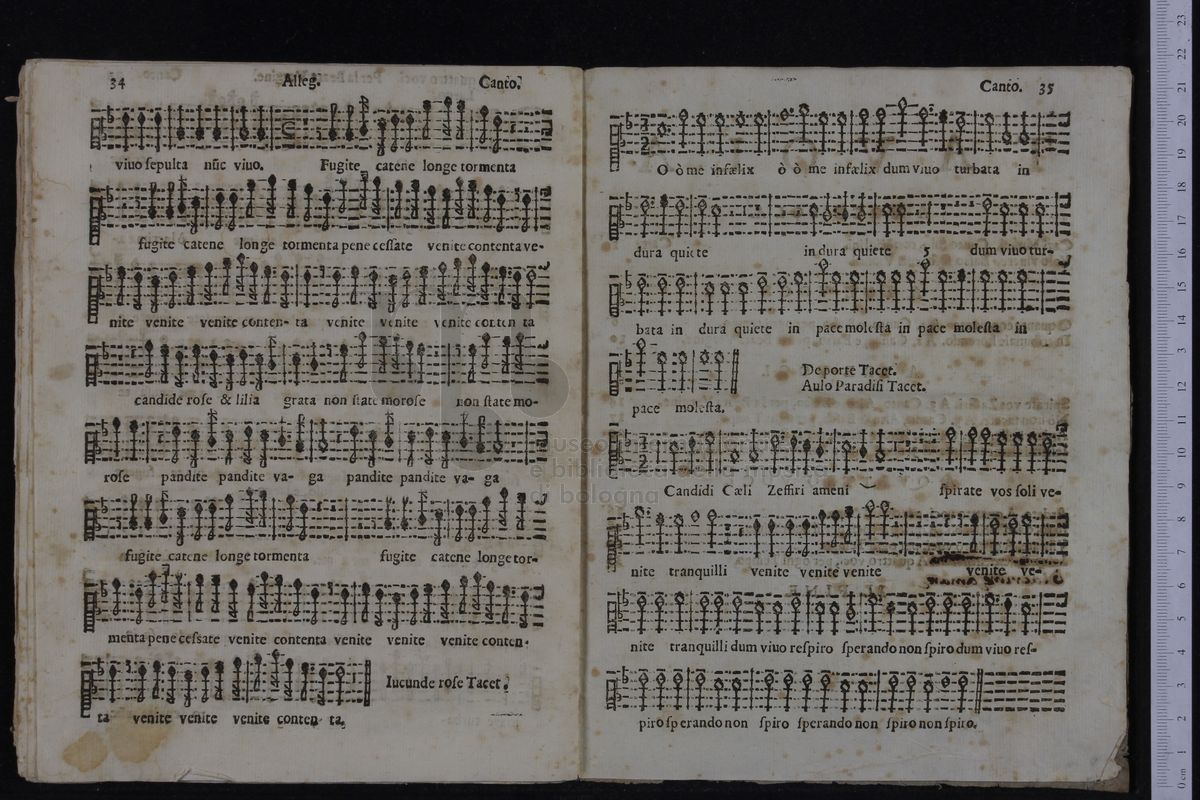 34 Alleg. Canto.
viuo sepulta nũc viuo. Fugite catene longe tormenta
fugite catene longe tormenta pene cessate venite contenta ve-
nite venite venite conten- ta venite venite venite conten ta
candide rose & lilia grata non state morose non state mo-
rose pandite pandite va- ga pandite pandite va- ga
fugite catene longe tormenta fugite catene longe tor-
menta pene cessate venite contenta venite venite venite conten-
Iucunde rose Tacet.
ta venite venite venite conten- ta.
Canto. 35
O ò me infælix ò ò me infælix dum viuo turbata in
dura quiete in dura quiete 5 dum viuo tur-
bata in dura quiete in pace molesta in pace molesta in
De porte Tacet.
Aulo Paradisi Tacet.
pace molesta.
Candidi Cæli Zeffiri ameni spirate vos soli ve-
nite tranquilli venite venite venite venite ve-
nite tranquilli dum viuo respiro sperando non spiro dum viuo res-
piro sperando non spiro sperando non spiro non spiro.
museo
e biblio
di bologna